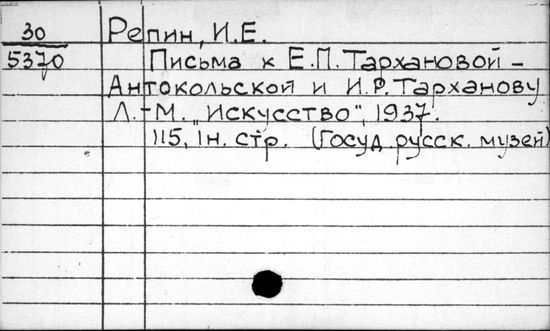 30
5370
Репин, И.Е.
Письма к Е.П. Тархановой -
Антокольской и И.Р. Тарханову
Л.-М. "Искусство", 1937.
115, 1н. стр. (Госуд. русск. музей)